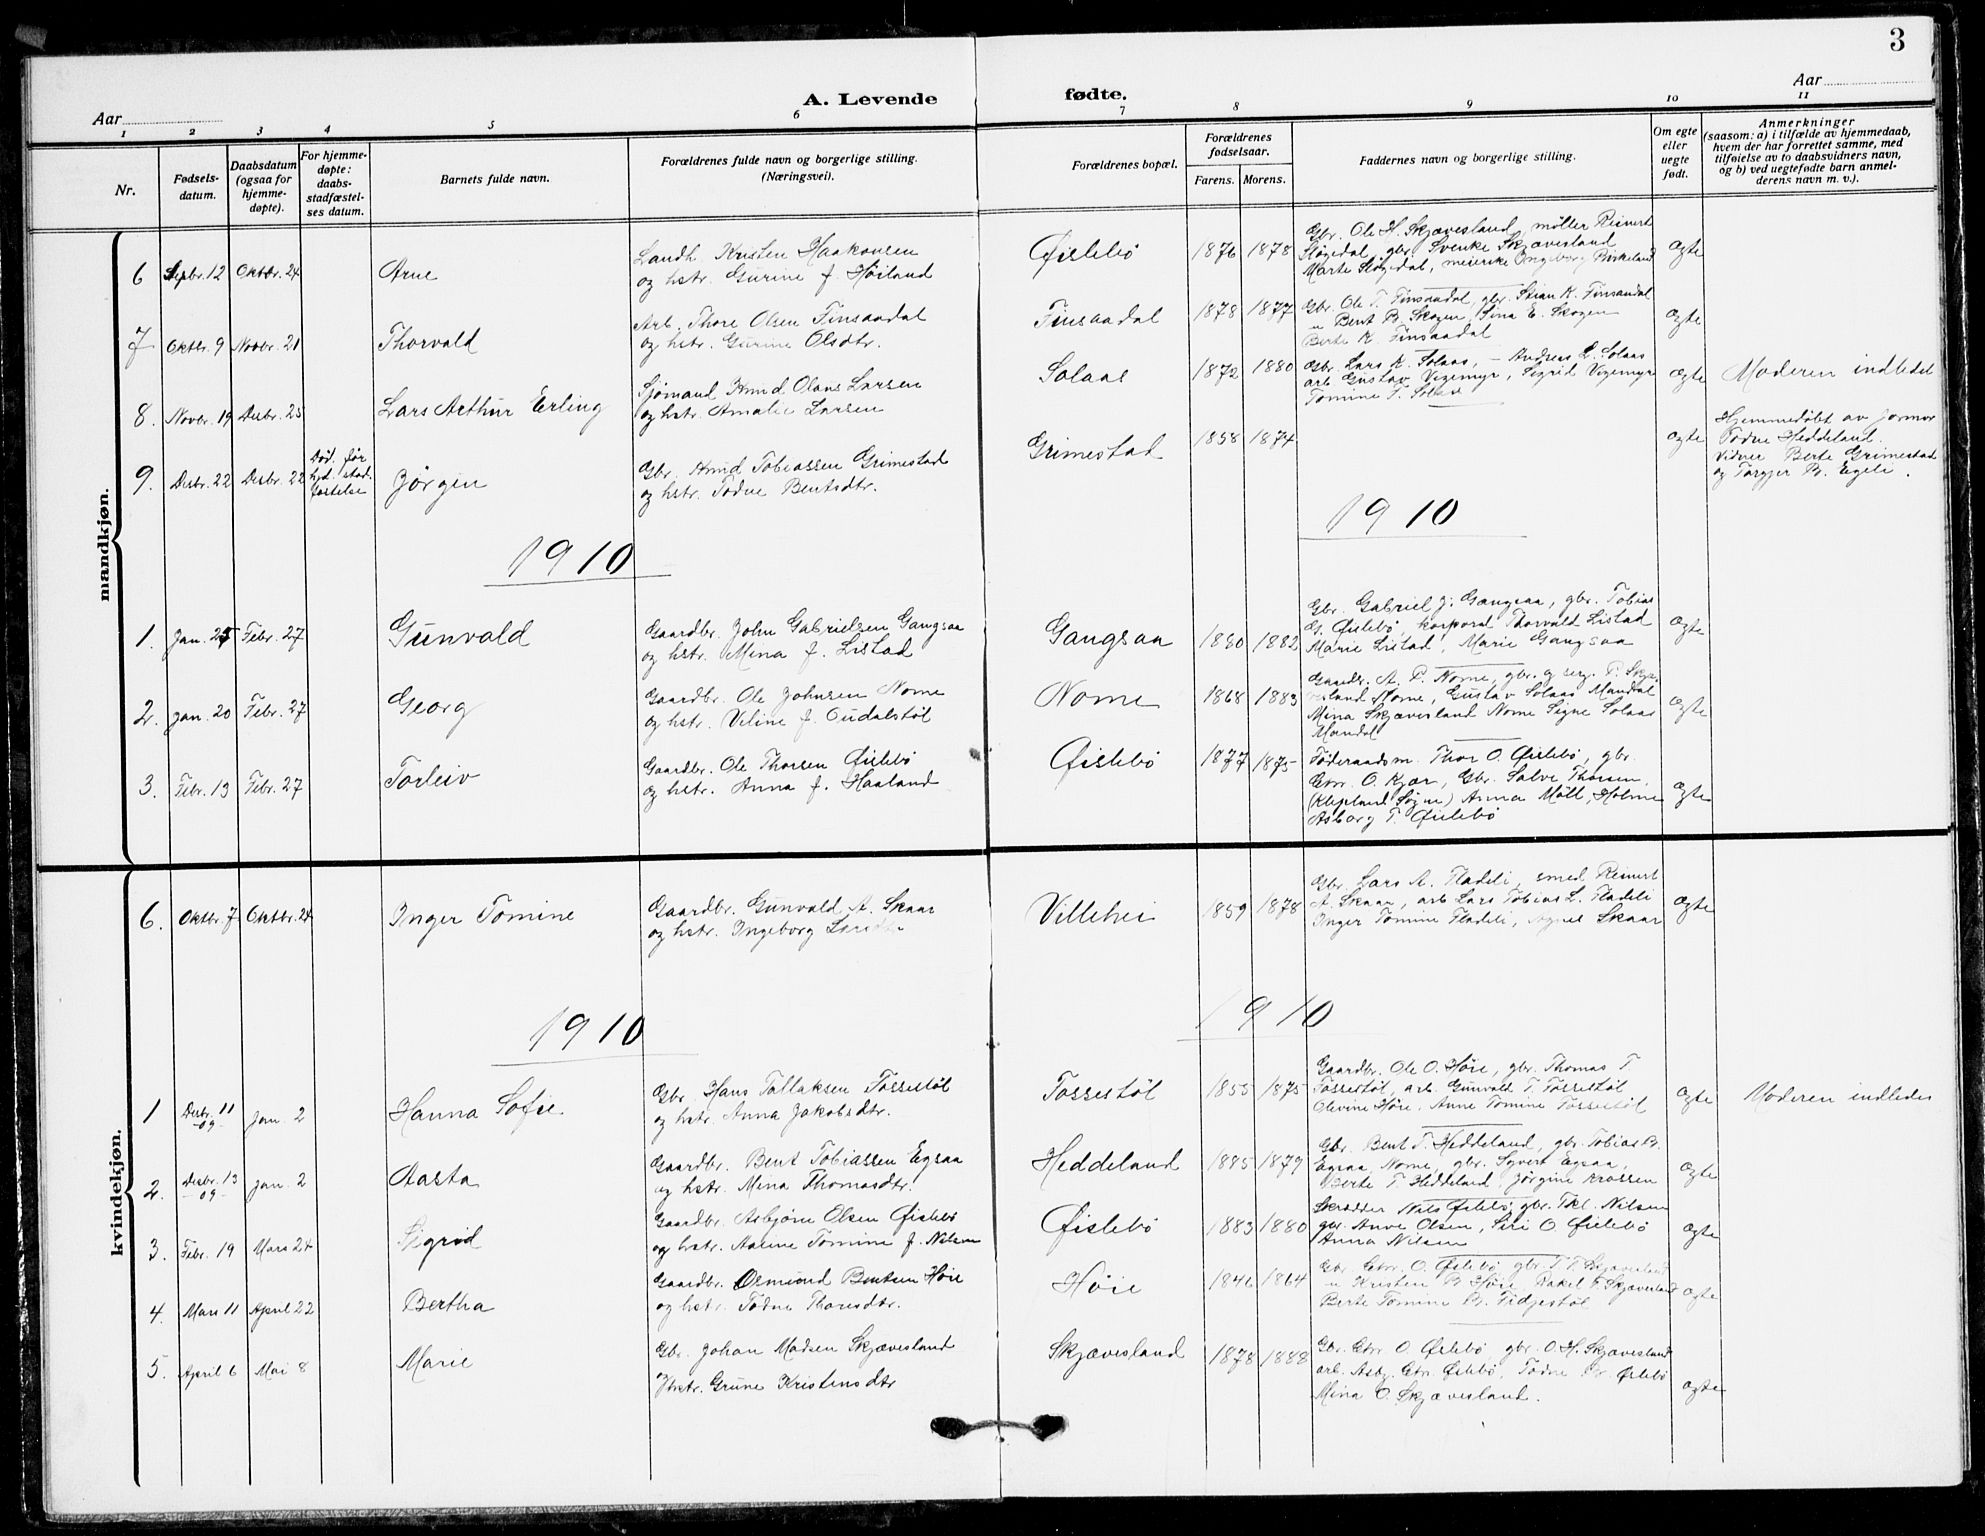 3
A. Levende fødte.
Aar
Aar
1 2 3 4 5 6 7 8 9 10 11
Nr.
Fødsels-
datum.
Daabsdatum
(ogsaa for
hjemme-
døpte).
For hjemme-
døpte:
daabs-
stadfæstel-
ses datum.
Barnets fulde navn.
Forældrenes fulde navn og borgerlige stilling.
(Næringsvei).
Forældrenes bopæl.
Forældrenes
fødselsaar.
Farens. Morens.
Faddernes navn og borgerlige stilling.
Om egte
eller
uegte
født.
Anmerkninger
(saasom: a) i tilfælde av hjemmedaab,
hvem der har forrettet samme, med
tilføielse av to daabsvidners navn,
og b) ved uegtefødte barn anmel-
derens navn m. v.).
mandkjøn.
6 Sepbr. 12 Oktbr. 24 Arne
Landh. Kristen Haakonsen
og hstr. Gurine f. Høiland
Øislebø 1876 1878
Gbr. Ole H. Skjævesland, møller Reinert
Sløgedal, gbr. Svenke Skjævesland
Marte Sløgedal, meierske Ingeborg Birkeland
Ægte
7 Oktbr. 9 Novbr. 21 Thorvald
Arb. Thore Olsen Finsaadal
og hstr. Gurine Olsdtr.
Finsaadal 1878 1877
Gbr. Ole T. Finsaadal, gbr. Stian K. Finsaadal
u Bent B. Skogen, Sina E. Skogen
Berte K. Finsaadal
Ægte
8. Novbr. 19 Desbr. 25 Lars Arthur Erling
Sjømand Knud Olaus Larsen
og hstr. Amalie Larsen
Solaas 1872 1880
Gbr. Lars K. Solaas, - Andreas L. Solaas
arb. Gustav Vigemyr, Sigrid Vigemyr
Tomine T. Solaas
Ægte
Moderen indledet
9. Desbr. 22 Desbr. 22
Død før
hjd. stad-
festelse
Jørgen
Gbr. Knud Tobiassen Grimestad
og hstr. Todne Bentsdtr.
Grimestad 1858 1874
Ægte
Hjemmedøbt av jormor
Todne Heddeland.
Vidner Berte Grimestad
og Torgjer B. Egeli.
1910
1910
1. Jan. 25 Febr. 27 Gunvald
Gaardbr. John Gabrielsen Gangsaa
og hstr. Mina f. Listad
Gangsaa 1880 1882
Gbr. Gabriel J. Gangsaa, gbr. Tobias
G. Øislebø, korporal Thorvald Listad
Marie Listad, Marie Gangsaa
Ægte
2. Jan. 20 Febr. 27 Georg
Gaardbr. Ole Johnsen Nome
og hstr. Veline f. Oudalstøl
Nome 1868 1883
Gaardbr. A. P. Nome, gbr. og serg. P. Skjæ-
vesland Nome, Gustav Solaas Mandal
Mina Skjævesland Nome Signe Solaas
Mandal
Ægte
3. Febr. 13 Febr. 27 Torleiv
Gaardbr. Ole Thorsen Øislebø
og hstr. Anna f. Haaland
Øislebø 1877 1875
Føderaadsm. Thor O. Øislebø, gbr.
Gbr. O. Kjær, Gbr. Salve Thorsen
(Klepland Søgne) Anna Møll, Holme
Asborg T. Øislebø
Ægte
kvindekjøn.
6. Oktbr. 7 Oktbr. 24 Inger Tomine
Gaardbr. Gunvald A. Skaar
og hstr. Ingeborg Larsdtr.
Villehei 1859 1878
Gbr. Lars A. Fladeli, smed Reinert
A. Skaar, arb Lars Tobias L. Fladeli
Inger Tomine Fladeli, Agnet Skaar
Ægte
1910
1910
1 Desbr. 11
-09-
Jan. 2 Hanna Sofie
Gbr. Hans Tallaksen Tossestøl
og hstr. Anna Jakobsdtr.
Tossestøl 1855 1875
Gaardbr. Ole O. Høie, gbr. Thomas T.
Tossestøl, arb. Gunvald T. Tossestøl
Olivine Høie, Anne Tomine Tossestøl
Ægte
Moderen indledes
2. Desbr. 13
-09-
Jan. 2 Aasta
Gaardbr. Bent Tobiassen Egsaa
og hstr. Mina Thomasdtr.
Heddeland 1885 1879
Gbr. Bent T. Heddeland, gbr. Tobias B.
Egsaa, Nome, gbr. Syvert Egsaa,
Berte T. Heddeland, Jørgine Krossen
Ægte
3. Febr. 19 Mars 24 Sigrid
Gaardbr. Asbjørn Olsen Øislebø
og hstr. Aarine Tomine f. Nilsen
Øislebø 1883 1880
Skrædder Nils Øislebø, gbr. Tkl. Nilsen
gbr. Anve Olsen, Siri O. Øislebø
Anna Nilsen
Ægte
4. Mars 11 April 22 Bertha
Gaardbr. Osmund Bentsen Høie
og hstr. Todne Thoresdtr.
Høie 1846 1864
Gbr. Gbr. O. Øislebø gbr. T. T. Skjævesland
u Kristen B. Høie, Rakel T. Skjævesland
Berte Tomine B. Fidjestøl
Ægte
5. April 6 Mai 8 Marie
Gbr. Johan Madsen Skjævesland
Hstr. Grune Kristensdtr
Skjævesland 1878 1888
Gbr. Gbr. O. Øislebø gbr. O. H. Skjævesland
arb. Asbj. Gbr. Øislebø, Todne Øislebø
Mina O. Skjævesland.
Ægte